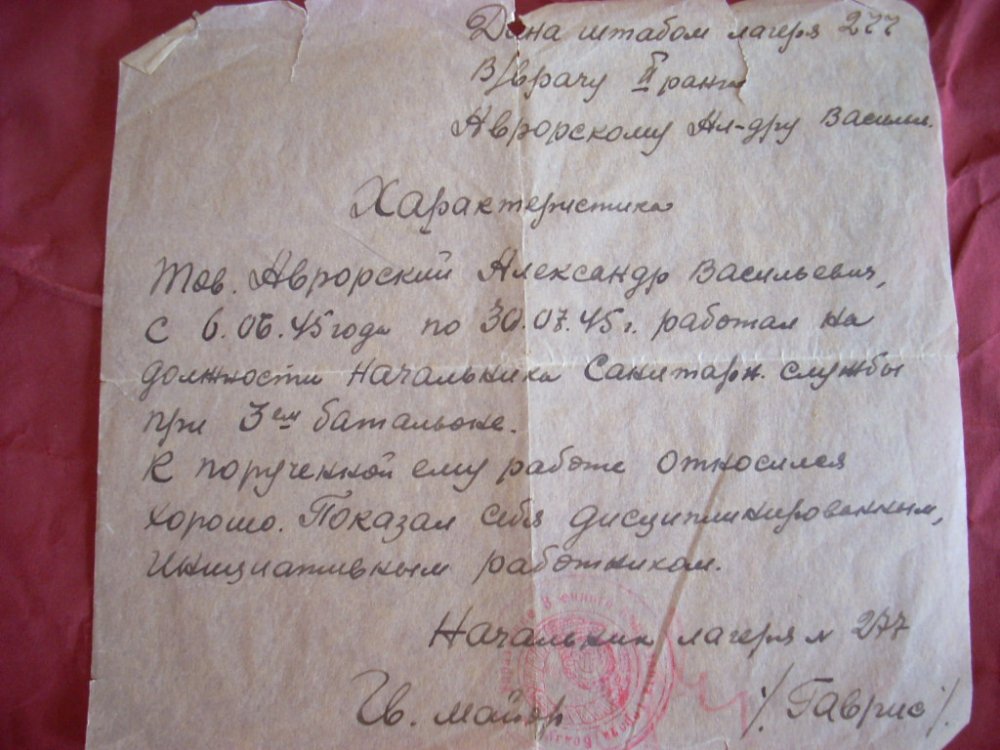 Дана штабом лагеря 277
В/врачу II ранга
Аврорскому Ал-дру Васил.
Характеристика
Тов. Аврорский Александр Васильевич,
с 6.06.45 года по 30.07.45 г. работал на
должности начальника Санитарн. службы
при 3ем батальоне.
К порученной ему работе относился
хорошо. Показал себя дисциплинированным,
инициативным работником.
Начальник лагеря № 277
Гв. майор /Гаврис/